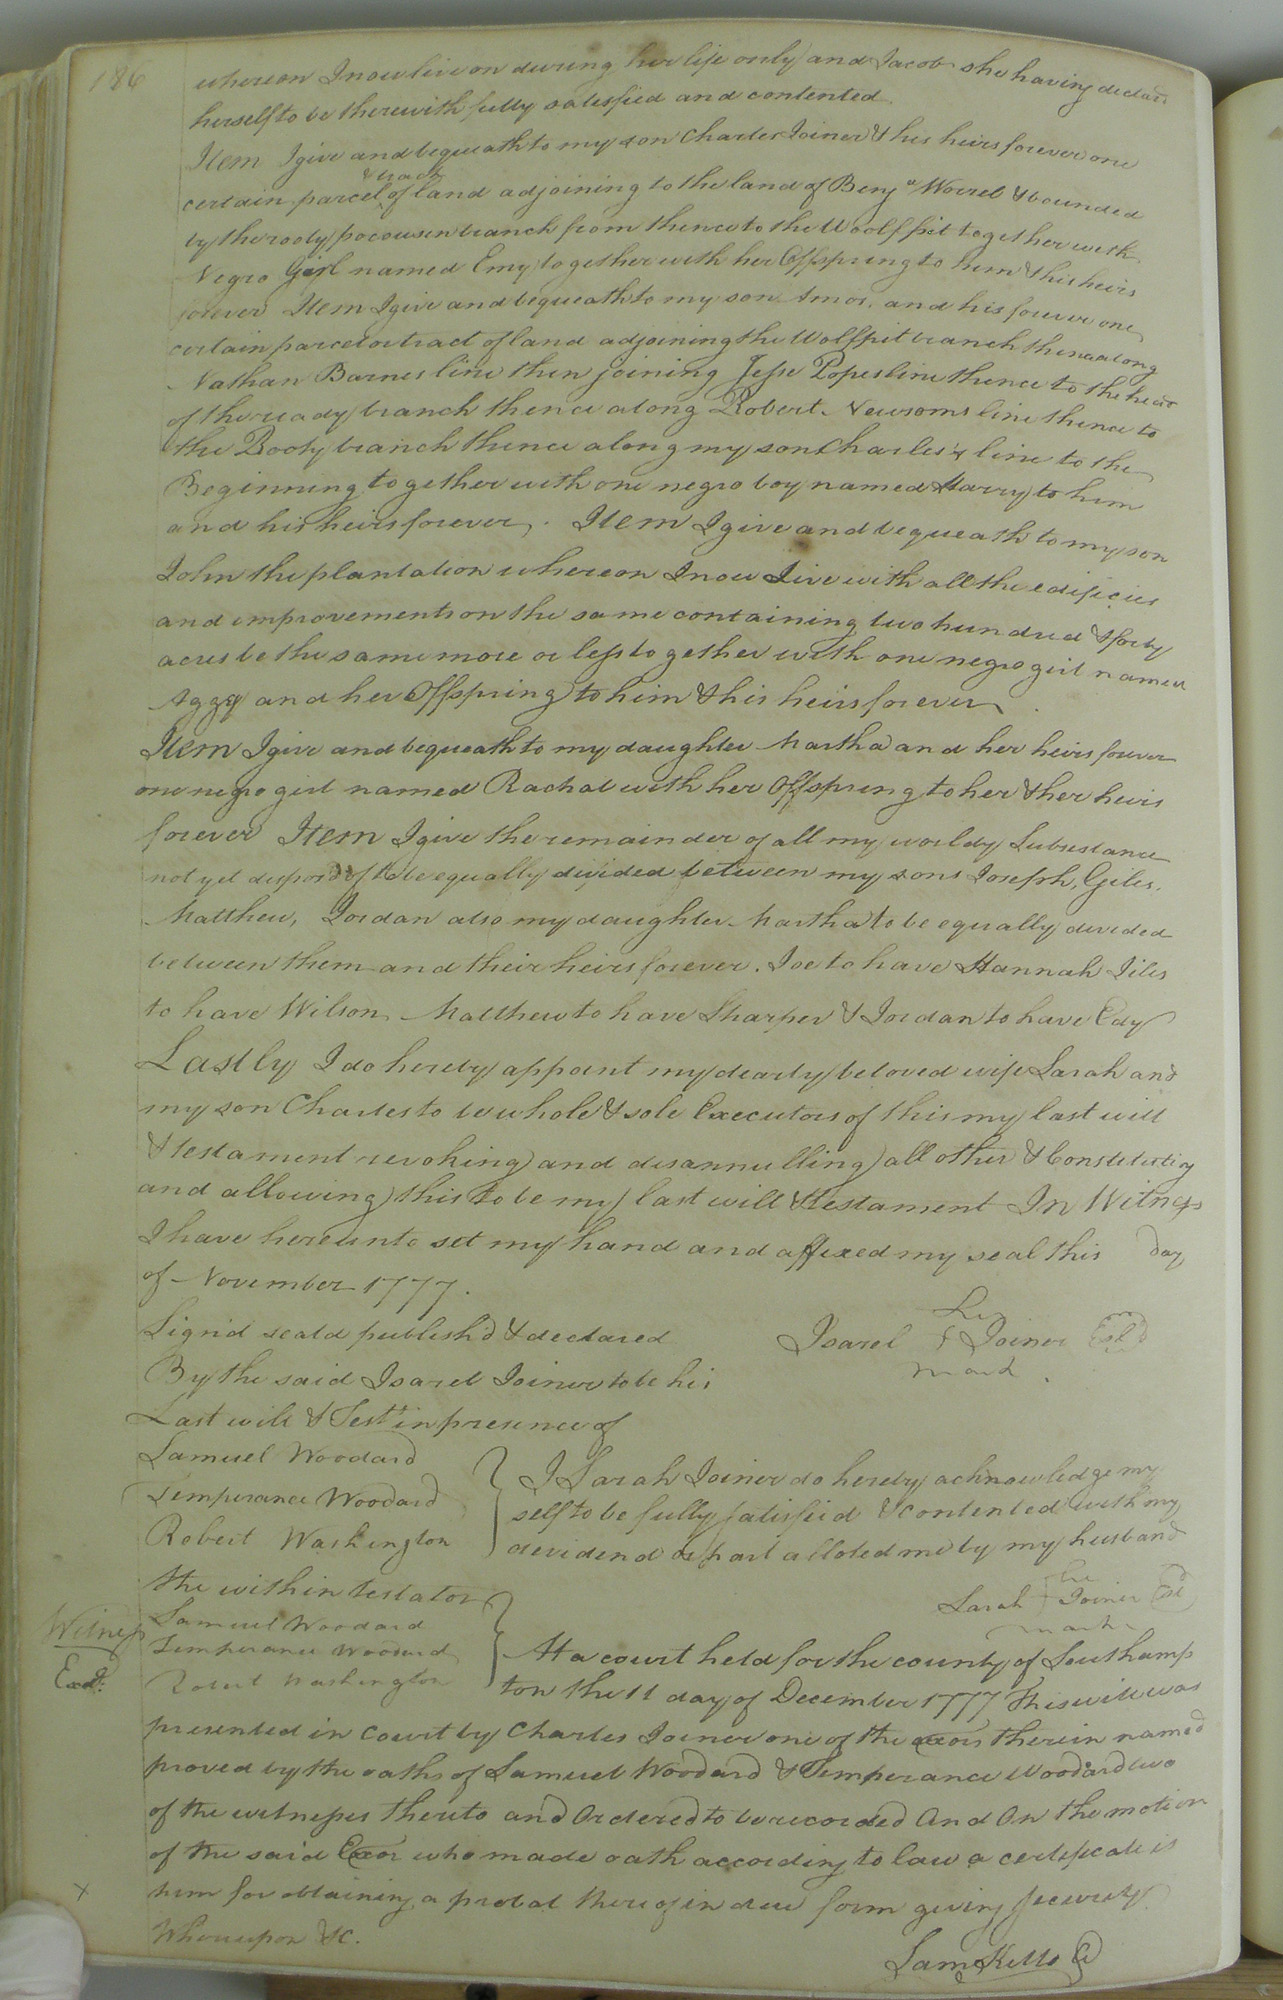 186
whereon I now live on during her life only and Jacob she having declard
herself to be therewith fully satesfied and contented.
Item I give and bequeath to my son Charles Joiner & his heirs forever one
certain parcel & tract of land adjoining to the land of Benja Worrel & bounded
by the pocousen branch from thence to the Woolf pit together with
Negro Girl named Emy together with her Offspring to him & his heirs
forever Item I give and bequeath to my son Amos. and his forever one
certain parcel or tract of land adjoining the Wolfpit branch thence along
Nathan Barnes line then joining Jesse Popes line thence to the head
of the ready branch thence along Robert Newsoms line thence to
the Booty branch thence along my son Charles's line to the
Beginning together with one negro boy named Harry to him
and his heirs forever. Item I give and bequeath to my son
John the plantation whereon I now Live with all the edificies
and improvements on the same containing two hundred & forty
acres be the same more or less together with one negro girl named
Aggy and her Offspring to him & his heirs forever.
Item I give and bequeath to my daughter Martha and her heirs forever
one negro girl named Rachal with her Offspring to her & her heirs
forever Item I give the remainder of all my worldy Substance
not yet disposd of to be equally divided between my sons Joseph, Giles.
Matthew, Jordan also my daughter Martha to be equally divided
between them and their heirs forever. Joe to have Hannah Jiles
to have Wilson Matthew to have Sharper & Jordan to have Edy
Lastly I do hereby appoint my dearly beloved wife Sarah and
my son Charles to be whole & sole Executors of this my last will
& testament revoking and disannulling all other & Constituting
and allowing this to be my last will & testament In Witness
I have hereunto set my hand and affixed my seal this day
of November 1777.
Sign'd seald publish'd & declared
Isarel Joiner
mark
By the said Isarel Joiner to be his
Last will & Testt in presence of
Samuel Woodard
Temperance Woodard
Robert Washington
I Sarah Joiner do hereby acknowledge my
self to be fully satisfied & contented with my
devidend or part alloted me by my husband
the within testator
Sarah Joiner
mark
Witness
Samuel Woodard
Temperance Woodard
Robert Washington
Exd:
At a court held for the county of Southamp
ton the 11 day of December 1777 This will was
presented in court by Charles Joiner one of the exors therein named
proved by the oaths of Samuel Woodard & Temperance Woodard two
of the witnesses thereto and Ordered to be recorded And On the motion
of the said Exor who made oath according to law a certificate is
him for obtaining a probat thereof in due form giving security
Whereupon &c.
x
Sam Kello